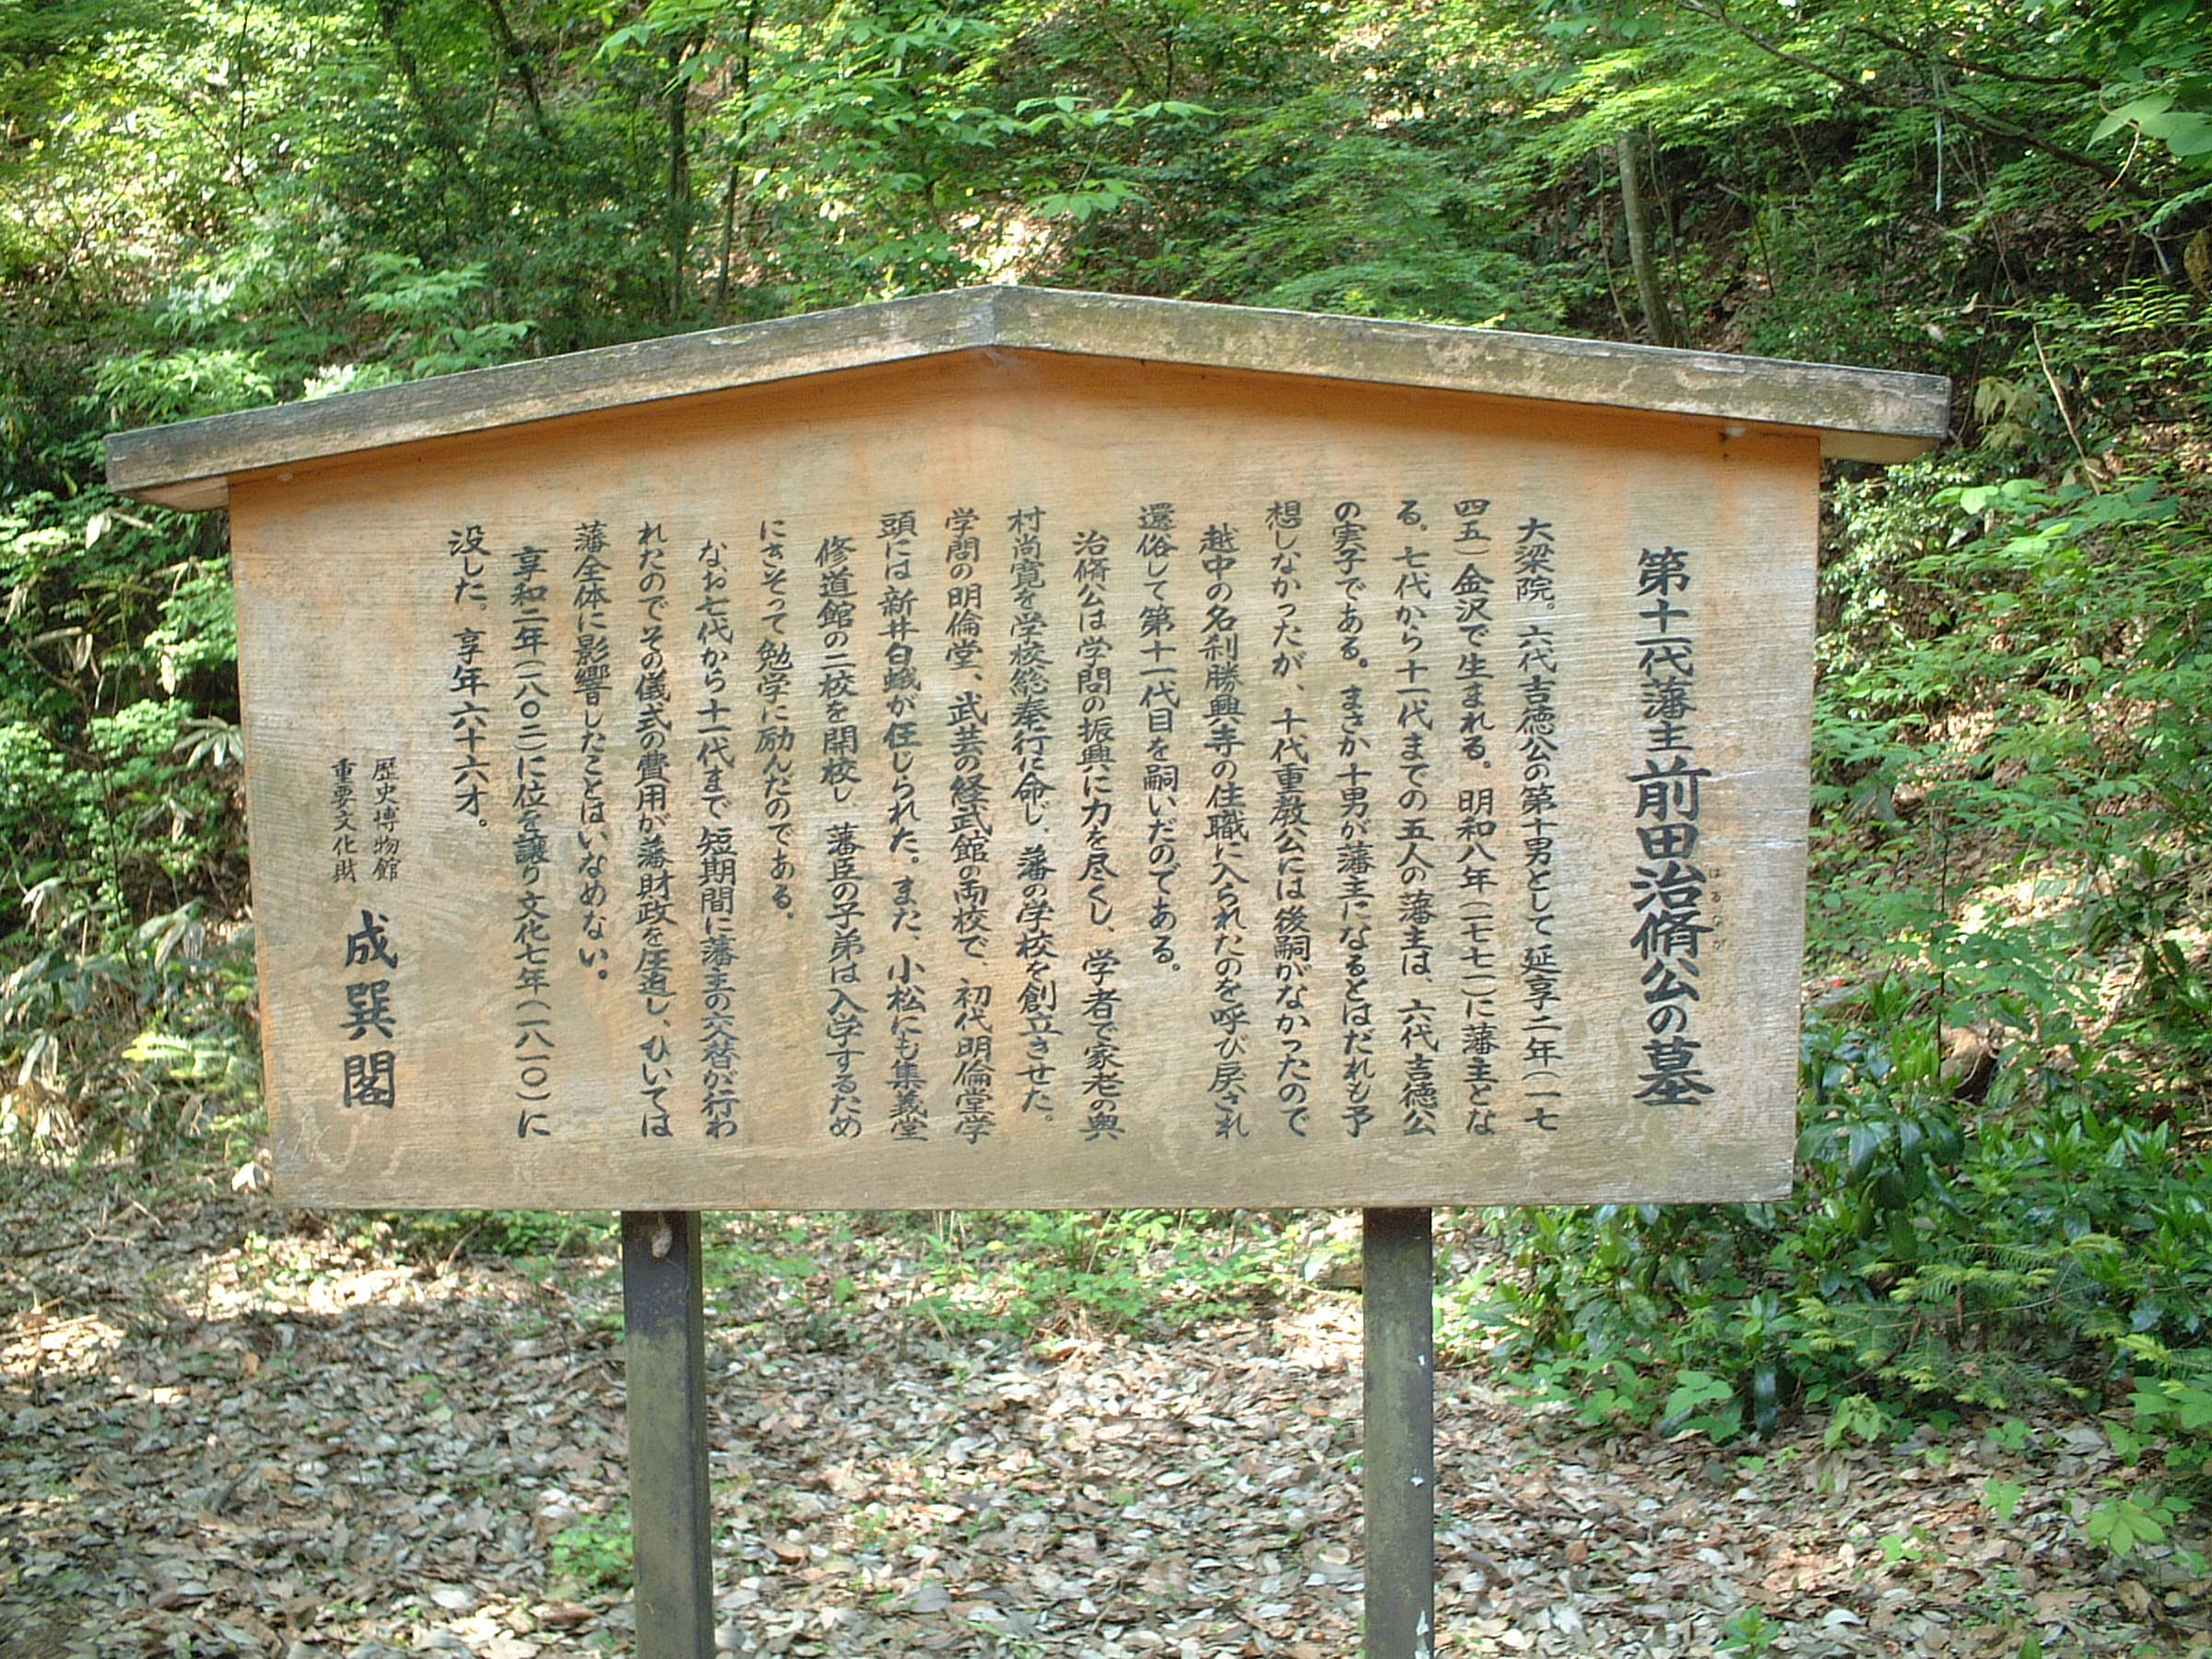 第十一代藩主前田治脩公の墓
はるなが
大梁院。六代吉徳公の第十男として延享二年(一七
四五)金沢で生まれる。明和八年(一七七一)に藩主とな
る。七代から十一代までの五人の藩主は、六代吉徳公
の実子である。まさか十男が藩主になるとはだれも予
想しなかったが、十代重教公には後嗣がなかったので
越中の名刹勝興寺の住職に入られたのを呼び戻され
還俗して第十一代目を嗣いだのである。
治脩公は学問の振興に力を尽くし、学者で家老の奥
村尚寛を学校総奉行に命じ、藩の学校を創立させた。
学問の明倫堂、武芸の経武館の両校で、初代明倫堂学
頭には新井白蛾が任じられた。また、小松にも集義堂
修道館の二校を開校し、藩臣の子弟は入学するため
にきそって勉学に励んだのである。
なお七代から十一代まで短期間に藩主の交替が行わ
れたのでその儀式の費用が藩財政を圧迫し、ひいては
藩全体に影響したことはいなめない。
享和二年(一八〇二)に位を譲り文化七年(一八一〇)に
没した。享年六十六才。
歴史博物館
重要文化財
成巽閣